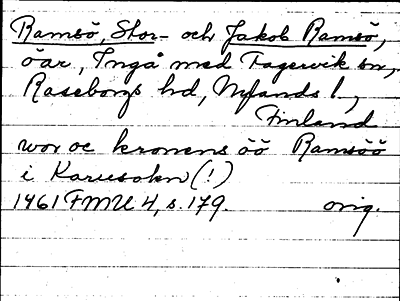 Ramsö, Stor- och Jakob Ramsö,
öar, Ingå med Fagervik sn,
Raseborgs hd, Nylands l.,
Finland
wor oc kronens öö Ramsöö
i Karusokn (!)
1461 FMU 4, s. 179. orig.